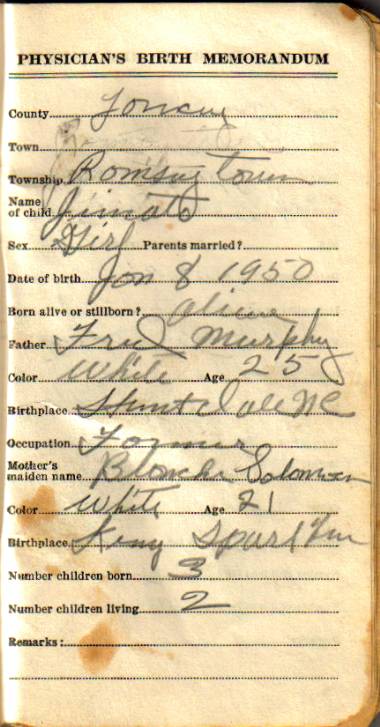 PHYSICIAN'S BIRTH MEMORANDUM
County
Town
Township Romsey town
Name
of child
Sex Girl Parents married?
Date of birth Jan 8 1950
Born alive or stillborn? alive
Father Fred Murphy
Color White Age 25
Birthplace NC
Occupation Farmer
Mother's
maiden name Blanche Solomon
Color White Age 21
Birthplace
Number children born 3
Number children living 2
Remarks: